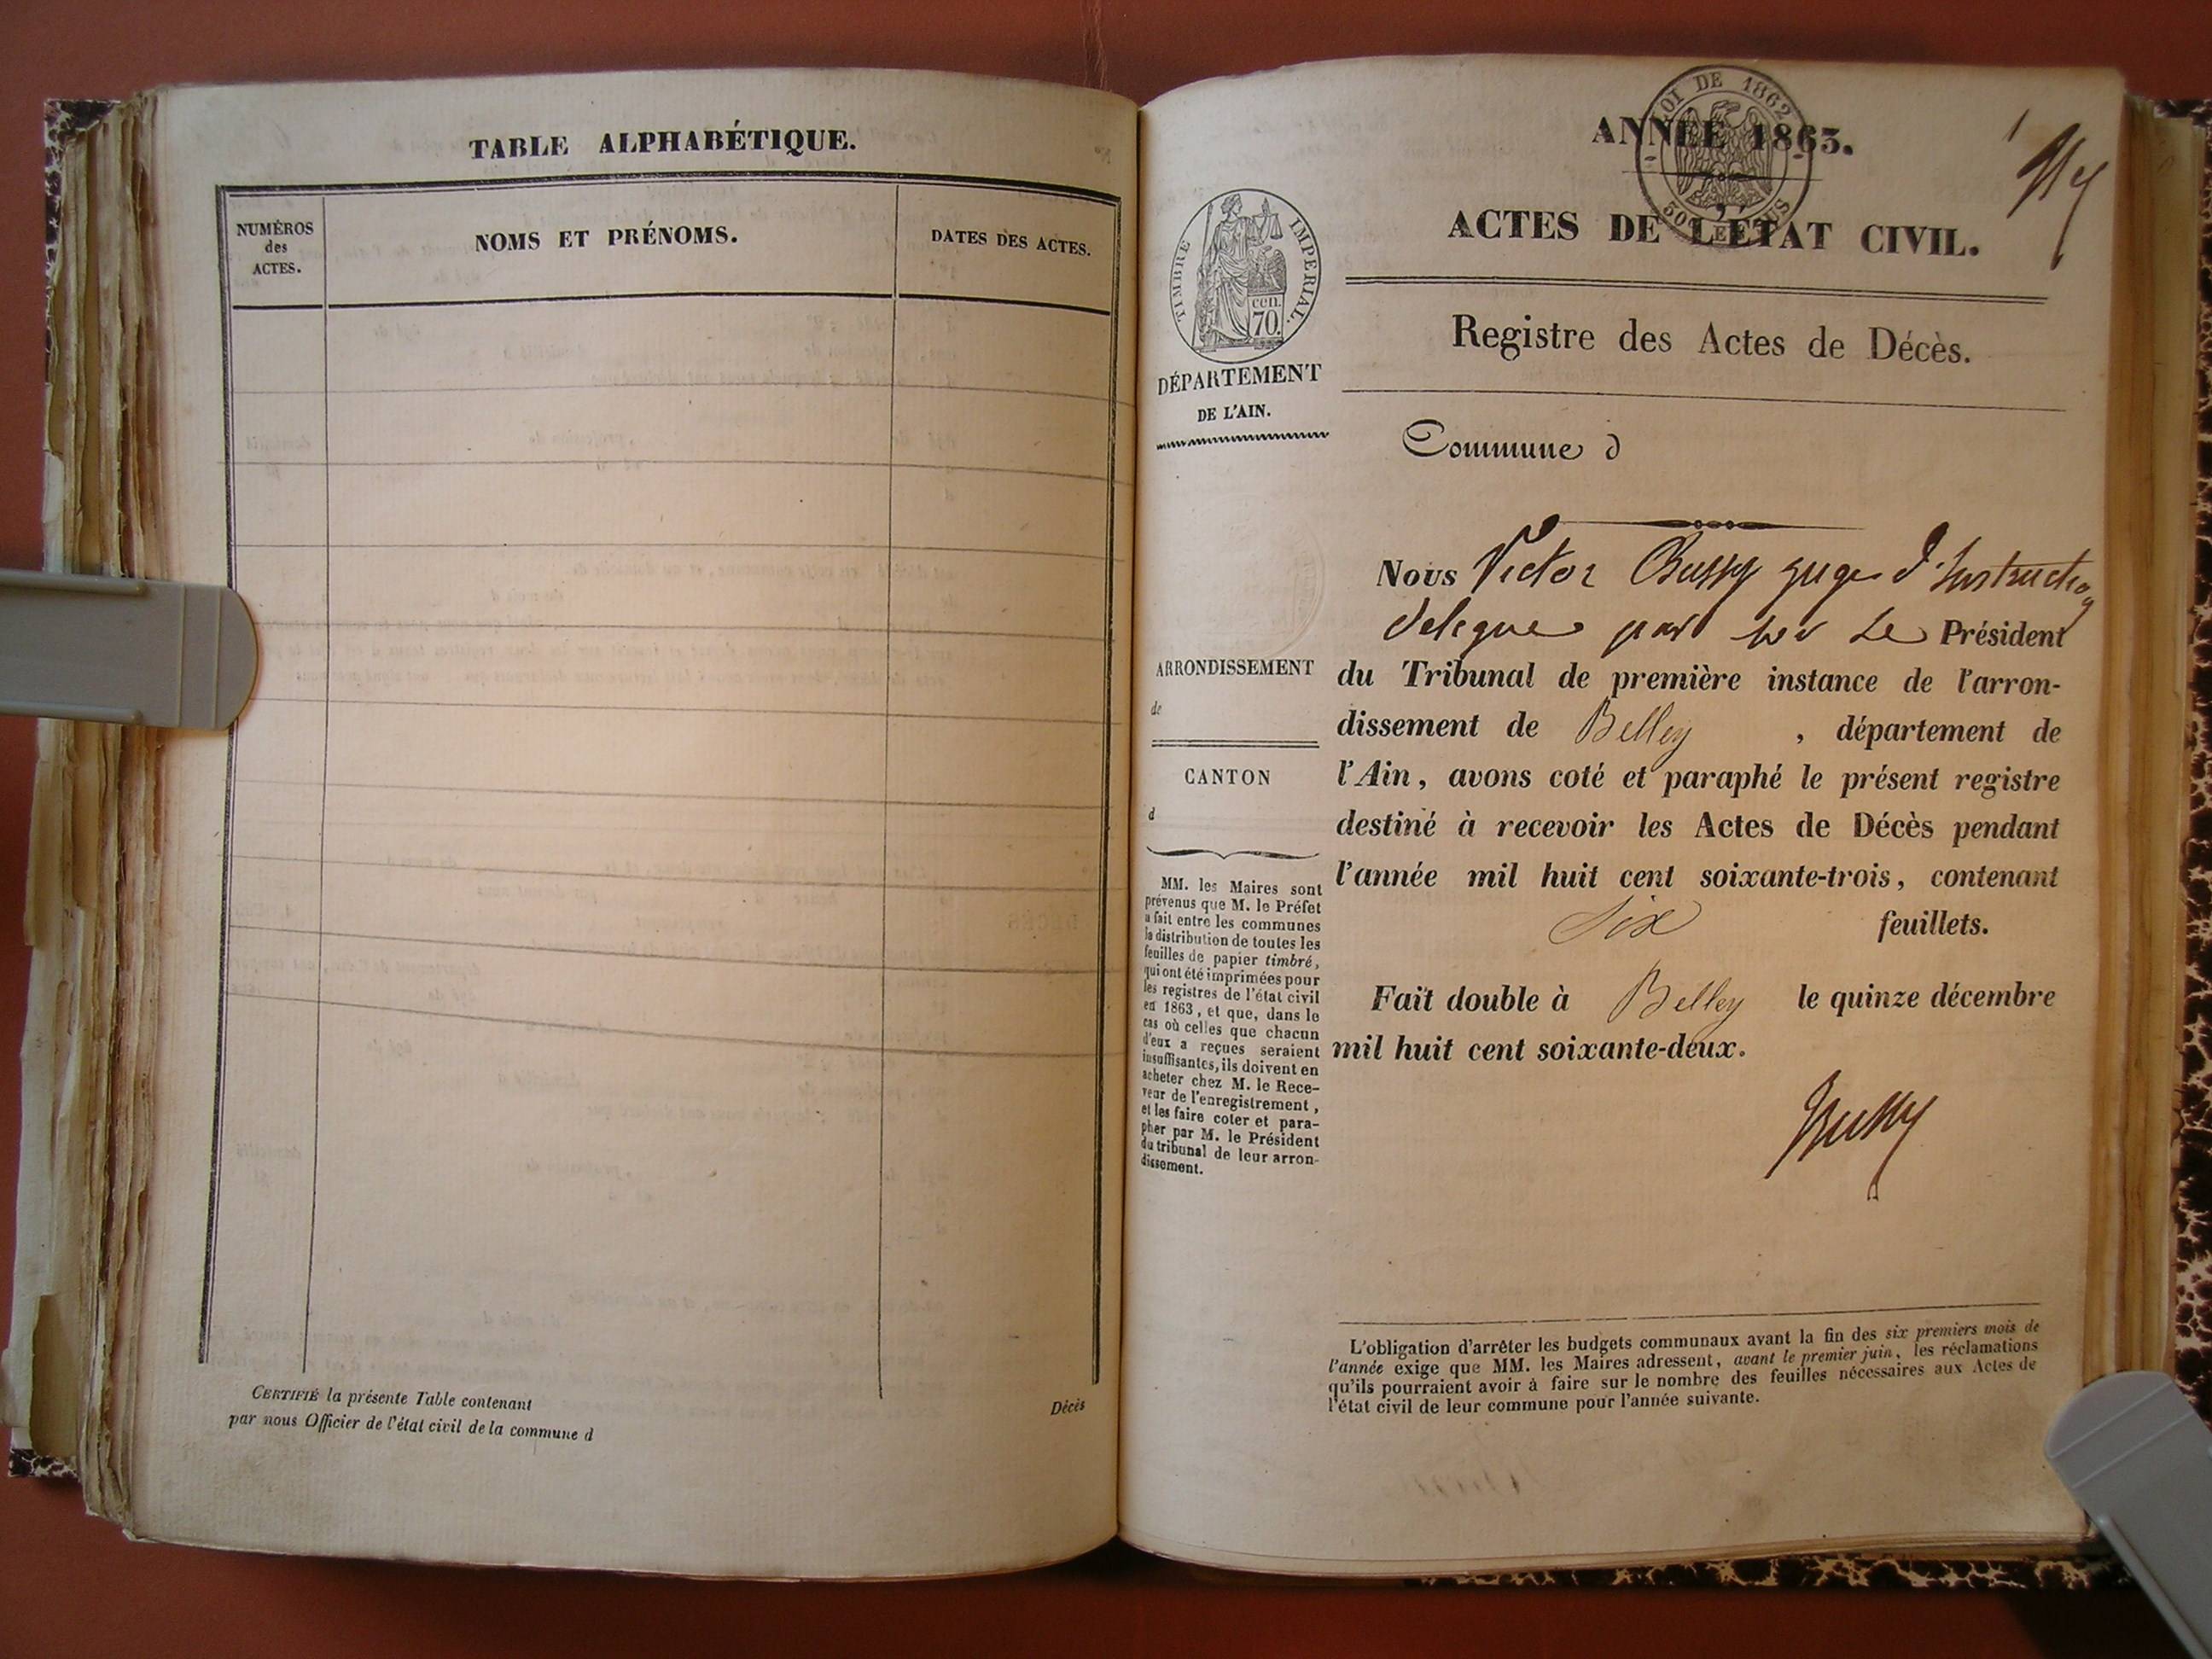 TABLE ALPHABÉTIQUE.
NUMÉROS
des
ACTES.
NOMS ET PRÉNOMS.
DATES DES ACTES.
CERTIFIÉ la présente Table contenant
Décès
par nous Officier de l'état civil de la commune d
LOI DE 1862
ANNÉE 1863.
ACTES DE L'ÉTAT CIVIL.
TIMBRE IMPERIAL.
cen.
70.
Registre des Actes de Décès.
DÉPARTEMENT
DE L'AIN.
Commune d
Nous Victor Bussy juge d'Instruction
delegue par Le Président
du Tribunal de première instance de l'arron-
dissement de Belley , département de
l'Ain, avons coté et paraphé le présent registre
destiné à recevoir les Actes de Décès pendant
l'année mil huit cent soixante-trois, contenant
Six feuillets.
Fait double à Belley le quinze décembre
mil huit cent soixante-deux.
Bussy
ARRONDISSEMENT
de
CANTON
d
MM. les Maires sont
prévenus que M. le Préfet
a fait entre les communes
la distribution de toutes les
feuilles de papier timbré,
qui ont été imprimées pour
les registres de l'état civil
en 1863, et que, dans le
cas où celles que chacun
d'eux a reçues seraient
insuffisantes, ils doivent en
acheter chez M. le Rece-
veur de l'enregistrement,
et les faire coter et para-
pher par M. le Président
du tribunal de leur arron-
dissement.
L'obligation d'arrêter les budgets communaux avant la fin des six premiers mois de
l'année exige que MM. les Maires adressent, avant le premier juin, les réclamations
qu'ils pourraient avoir à faire sur le nombre des feuilles nécessaires aux Actes de
l'état civil de leur commune pour l'année suivante.